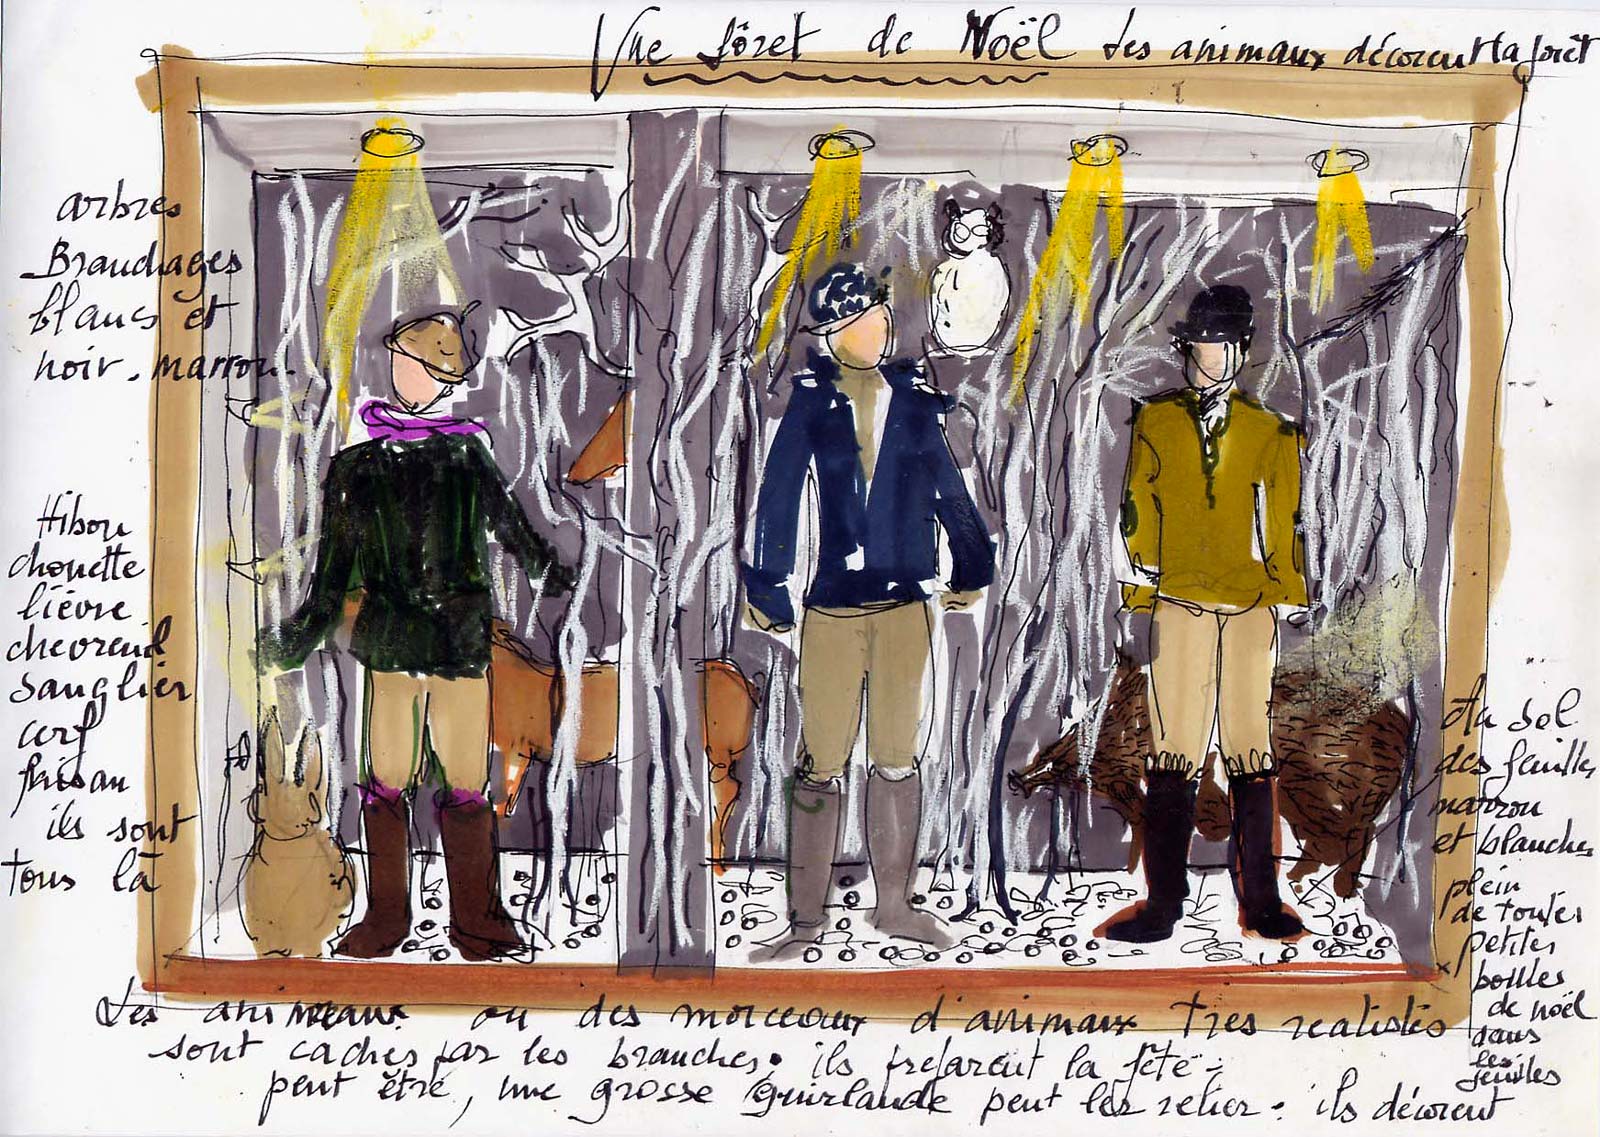 Une fôret de Noël des animaux décorent la forêt
arbres
Branchages
blancs et
noir. marron.
Hibou
chouette
lièvre
chevreuil
sanglier
cerf
faisan
ils sont
tous là
Au sol
des feuilles
marron
et blanches
plein
de toutes
petites
boules
de noël
dans
les
feuilles
Les animeaux ou des morceaux d'animaux très realistes
sont cachés par les branches. ils préparent la fête.
peut être, une grosse guirlande peut les relier. ils décorent